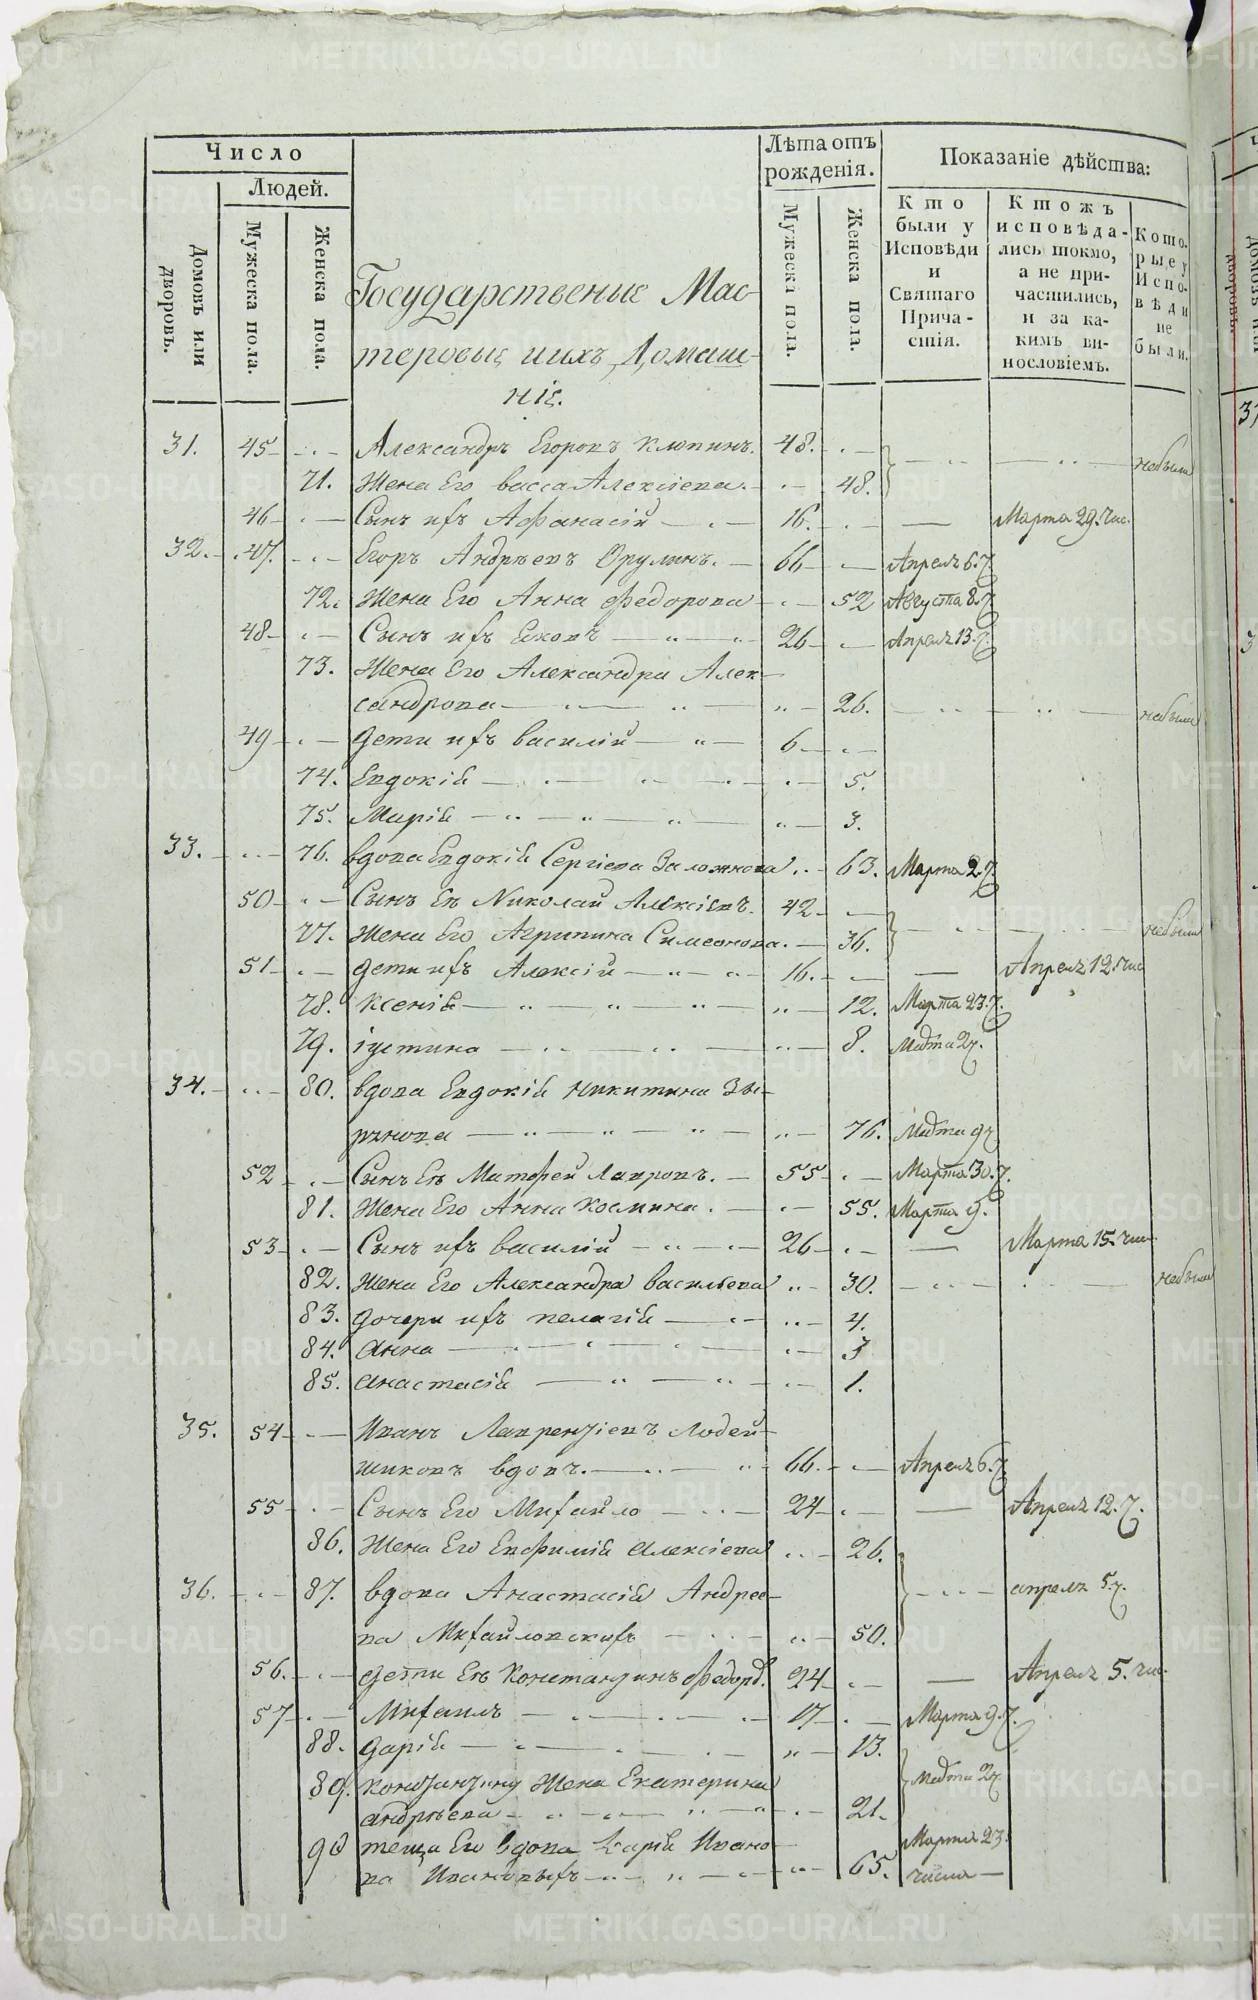 METRIKI.GASO-URAL.RU
Число
Лѣта отъ рожденія.
Показаніе дѣйства:
Людей.
Домовъ или дворовъ.
Мужеска пола.
Женска пола.
Мужеска пола.
Женска пола.
Кто были у Исповѣди и Святаго Прича-стія.
Ктожъ исповѣда-лись токмо, а не при-частились, и за ка-кимъ ви-нословіемъ.
Кото-рые у Испо-вѣди не были.
Государственые Мас-
теровые и ихъ Домаш-
ніе.
31. 45 Александръ Егоровъ Клюпинъ. 48. небыли
71. Жена Его васса Алексіева. 48.
46 Сынъ ихъ Афанасій 16. Марта 29. чис.
32. 47. Егоръ Андрѣевъ Орулинъ. 66 Апреля 6. ч.
72. Жена Его Анна Федорова 52 Августа 8. ч.
48 Сынъ ихъ Яковъ 26 Апреля 13. ч.
73. Жена Его Александра Алек-
сандрова 26. небыли
49 дети ихъ василій 6
74. Евдокія 5.
75. Марія 3.
33. 76. вдова Евдокія Сергіева Заложнова 63. Марта 2. ч.
50 Сынъ Ея Николай Алексіевъ. 42 небыли
77. Жена Его Агрипина Симеонова. 36.
51 дети ихъ Алексій 16. Апреля 12. чис
78. Ксенія 12. Марта 23. ч.
79. іустина 8. Марта 2 ч.
34. 80. вдова Евдокія Никитина Зы-
рянова 76. Марта 9 ч
52 Сынъ Ея Матфей Лавровъ. 55 Марта 30. ч.
81. Жена Его Анна Козмина. 55. Марта 9.
53 Сынъ ихъ василій 26 Марта 15. чис.
82. Жена Его Александра васильева 30. небыли
83. дочери ихъ пелагія 4.
84. Анна 3
85. Анастасія 1.
35. 54 Иванъ Лаврентіевъ Лодей-
щиковъ вдовъ. 66. Апреля 6. ч
55 Сынъ Его Михайло 24 Апреля 12. ч.
86. Жена Его Евфимія Алексіева 26.
36. 87. вдова Анастасія Андрее-
ва Михайловскихъ 50. апреля 5 ч.
56. дети Ея Константинъ Федор. 24 Апреля 5. чис.
57 Михаилъ 17 Марта 9. ч.
88. дарія 13.
89. Константину Жена Екатерина Марта 2 ч.
андрѣева 21.
90 теща Его вдова дарія Ивано-
ва Ивановыхъ 65. Марта 23. числа